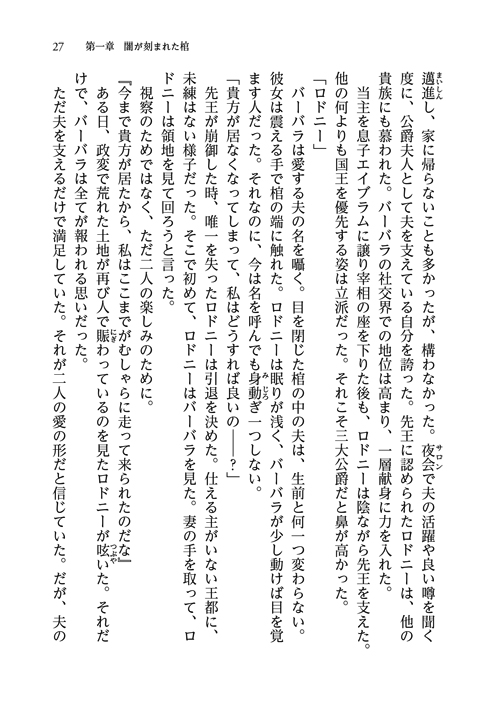 27　第一章　闇が刻まれた棺
邁進し、家に帰らないことも多かったが、構わなかった。夜会で夫の活躍や良い噂を聞く
度に、公爵夫人として夫を支えている自分を誇った。先王に認められたロドニーは、他の
貴族にも慕われた。バーバラの社交界での地位は高まり、一層献身に力を入れた。
　当主を息子エイブラムに譲り宰相の座を下りた後も、ロドニーは陰ながら先王を支えた。
他の何よりも国王を優先する姿は立派だった。それこそ三大公爵だと鼻が高かった。
「ロドニー」
　バーバラは愛する夫の名を囁く。目を閉じた棺の中の夫は、生前と何一つ変わらない。
彼女は震える手で棺の端に触れた。ロドニーは眠りが浅く、バーバラが少し動けば目を覚
ます人だった。それなのに、今は名を呼んでも身動ぎ一つしない。
「貴方が居なくなってしまって、私はどうすれば良いの――？」
　先王が崩御した時、唯一を失ったロドニーは引退を決めた。仕える主がいない王都に、
未練はない様子だった。そこで初めて、ロドニーはバーバラを見た。妻の手を取って、ロ
ドニーは領地を見て回ろうと言った。
　視察のためではなく、ただ二人の楽しみのために。
『今まで貴方が居たから、私はここまでがむしゃらに走って来られたのだな』
　ある日、政変で荒れた土地が再び人で賑わっているのを見たロドニーが呟いた。それだ
けで、バーバラは全てが報われる思いだった。
　ただ夫を支えるだけで満足していた。それが二人の愛の形だと信じていた。だが、夫の